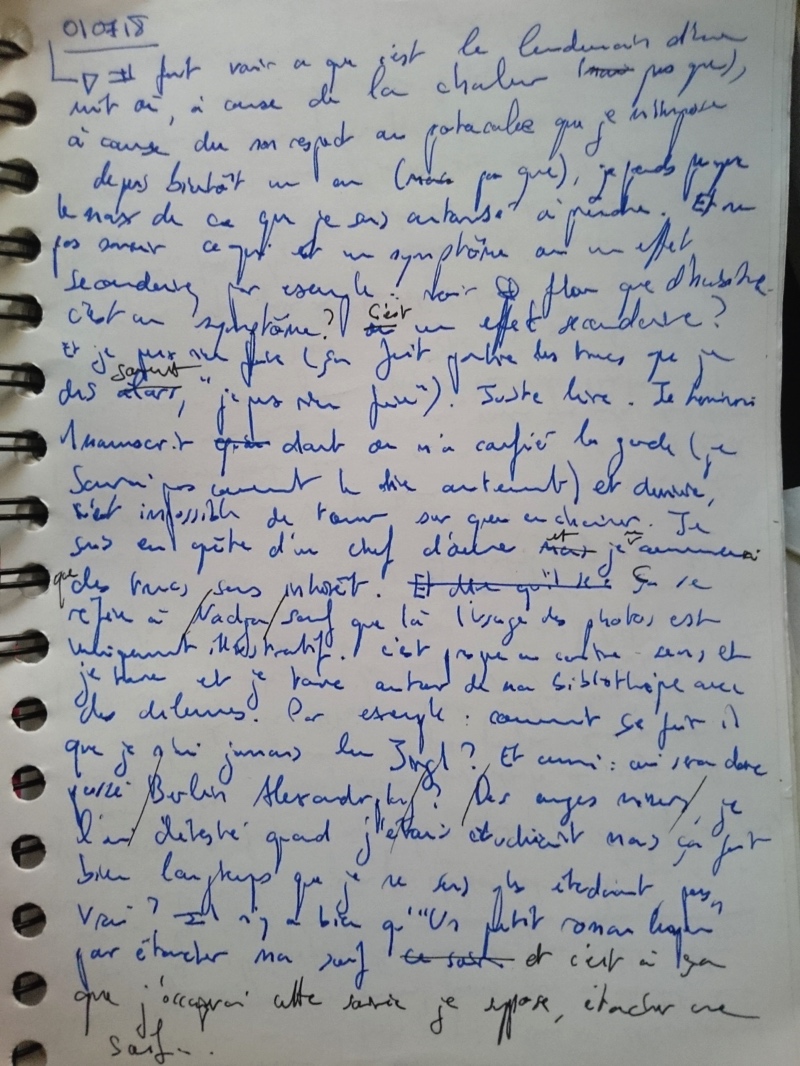 010718
Il faut voir ce que c'est le lendemain d'une
nuit où, à cause de la chaleur (mais pas que),
à cause du non respect au protocole que je m'impose
depuis bientôt un an (mais pas que), je perds presque
le max de ce que je suis autorisé à perdre. Et ne
pas savoir ce qui est un symptôme ou un effet
secondaire, par exemple : voir flou que d'habitude
c'est un symptôme? C'est un effet secondaire?
Et je peux rien faire (ça fait partie des trucs que je
dis souvent, "je peux rien faire"). Juste lire. Je terminai
1 manuscrit dont on m'a confié la garde (je
saurai pas comment le dire autrement) et ensuite,
m'est impossible de trouver sur quoi enchaîner. Je
suis en quête d'un chef d'œuvre et je
que des trucs sans intérêt. Et Ça se
réfère à Nadja sauf que là l'usage des photos est
uniquement illustratif. C'est presque un contre-sens, et
je tourne et je tourne autour de ma bibliothèque avec
des dilemmes. Par exemple : comment se fait il
que je n'ai jamais lu Jirgl? Et aussi : où sera donc
passé Berlin Alexanderplatz? Des anges mineurs, je
l'ai détesté quand j'étais étudiant mais ça fait
bien longtemps que je ne suis plus étudiant, pas
vrai? Il n'y a bien qu'"Un petit roman
pour étancher ma soif ce soir et c'est à ça
que j'occuperai cette soirée je suppose, étancher une
soif..